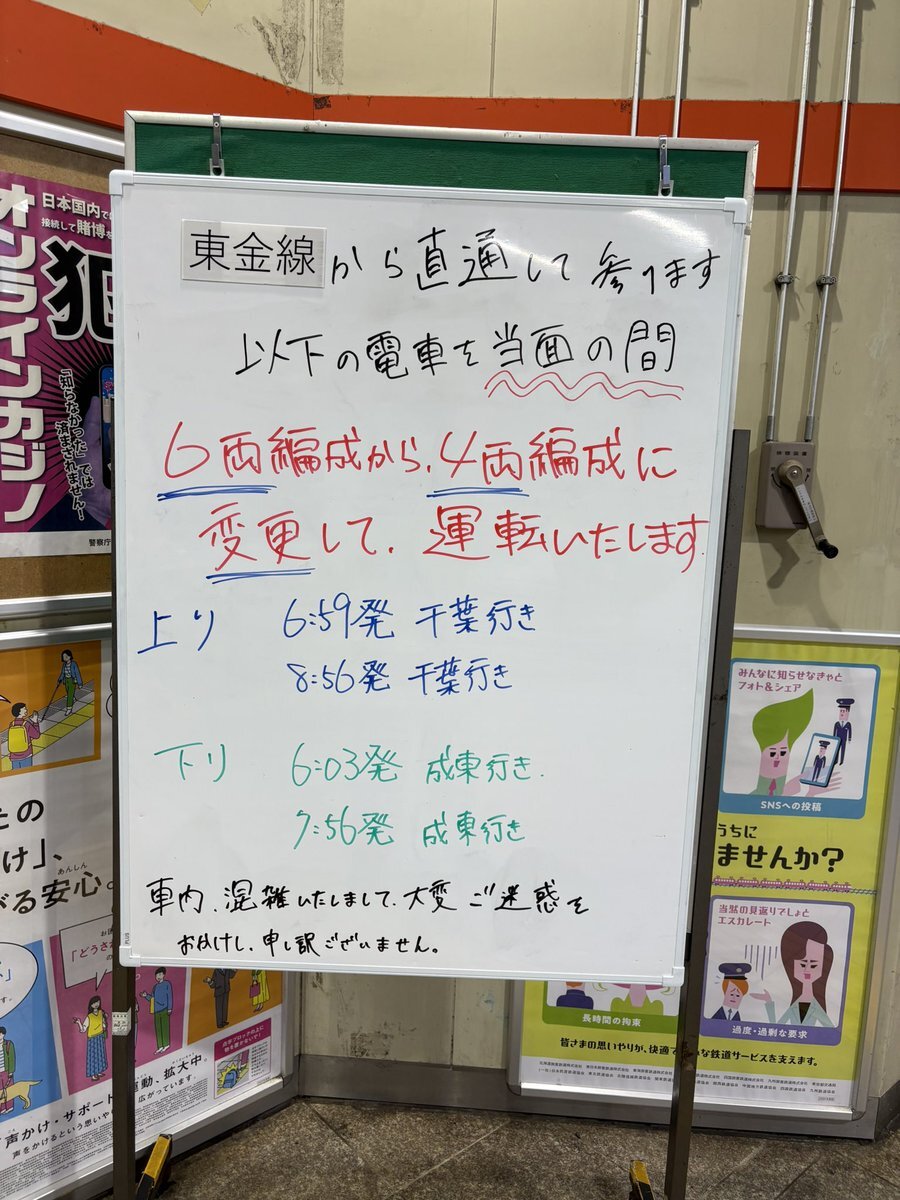 東金線から直通して参ります
以下の電車を当面の間
6両編成から、4両編成に
変更して、運転いたします。
上り 6:59発 千葉行き
8:56発 千葉行き
下り 6:03発 成東行き.
7:56発 成東行き
車内、混雑いたしまして、大変ご迷惑を
お掛けし、申し訳ございません。
日本国内で
接続して賭博を
犯
オンラインカジノ
「知らなかった」では
済まされません！
警察庁
たの
け」、
がる安心。
あんしん
「どうされ
点字ブロックの上に
物を置かないで！
運動、拡大中。
声かけ・サポート
広がっています。
みんなに知らせなきゃと
フォト＆シェア
SNSへの投稿
うちに
ませんか？
当然の見返りでしょと
エスカレート
長時間の拘束
過度・過剰な要求
皆さまの思いやりが、快適で
な鉄道サービスを支えます。